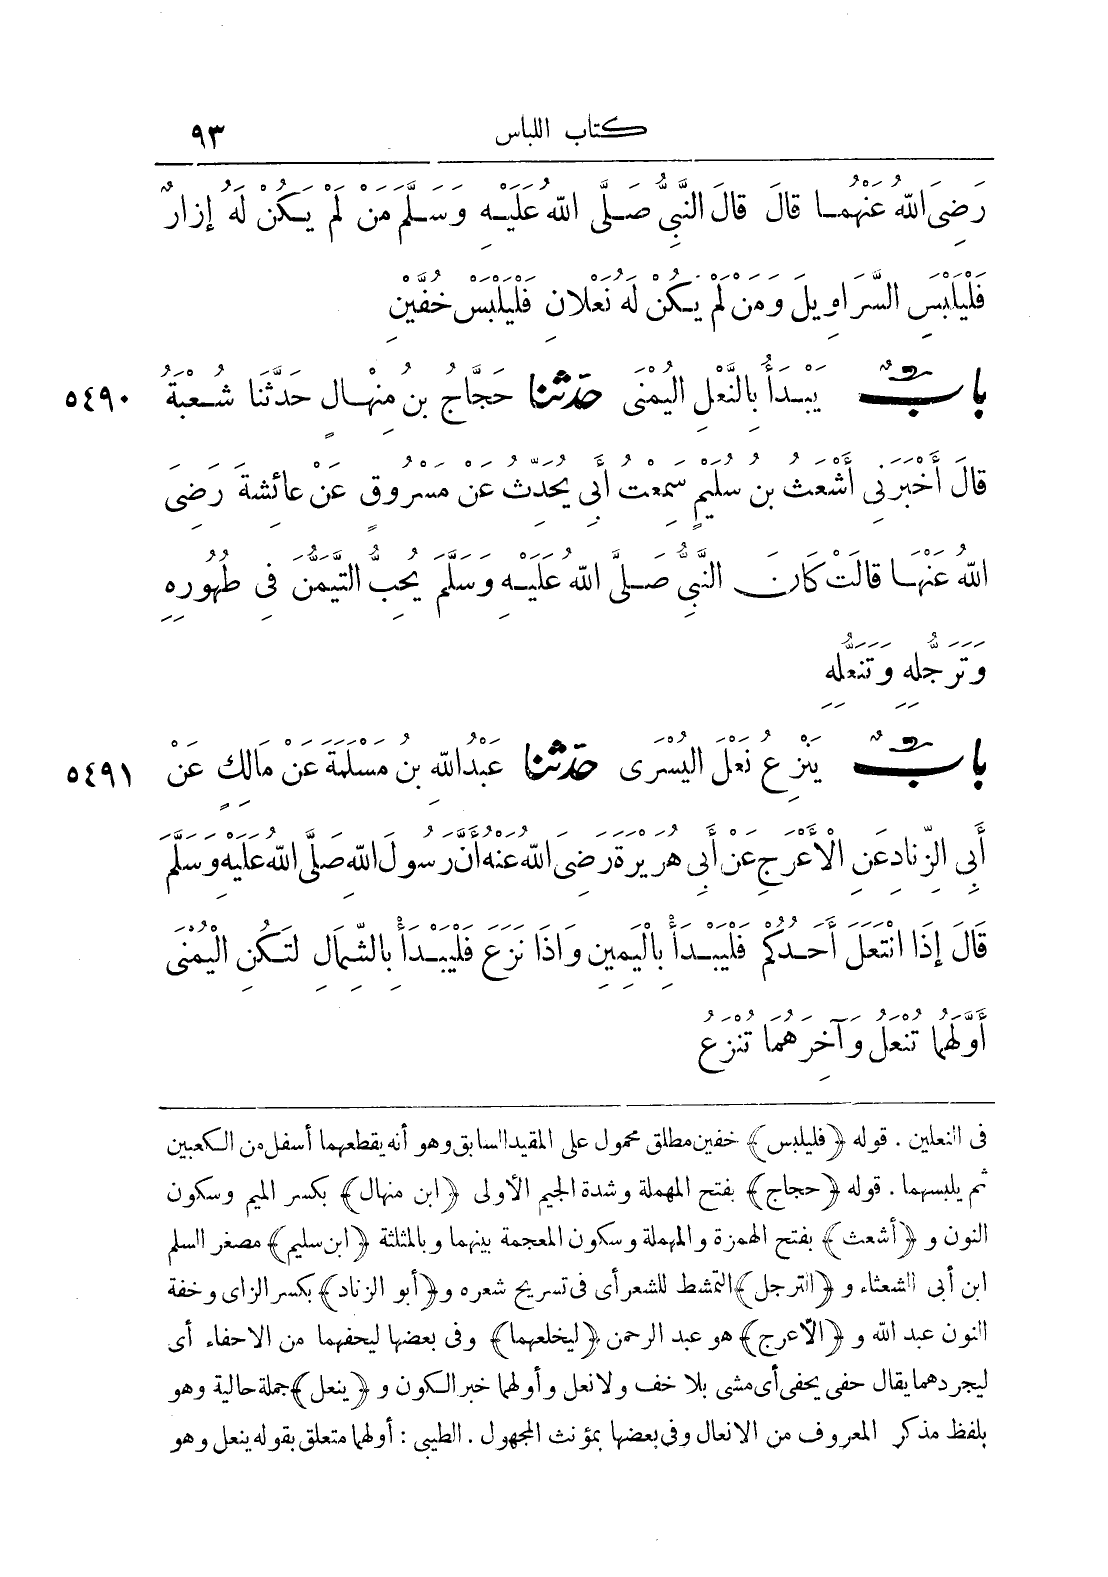 كتاب اللباس ٩٣
رَضِيَ اللهُ عَنْهُمَا قَالَ قَالَ النَّبِيُّ صَلَّى اللهُ عَلَيْهِ وَسَلَّمَ مَنْ لَمْ يَكُنْ لَهُ إِزَارٌ
فَلْيَلْبَسِ السَّرَاوِيلَ وَمَنْ لَمْ يَكُنْ لَهُ نَعْلَانِ فَلْيَلْبَسْ خُفَّيْنِ
بَابٌ يَبْدَأُ بِالنَّعْلِ الْيُمْنَى حَدَّثَنَا حَجَّاجُ بْنُ مِنْهَالٍ حَدَّثَنَا شُعْبَةُ ٥٤٩٠
قَالَ أَخْبَرَنِي أَشْعَثُ بْنُ سُلَيْمٍ سَمِعْتُ أَبِي يُحَدِّثُ عَنْ مَسْرُوقٍ عَنْ عَائِشَةَ رَضِيَ
اللهُ عَنْهَا قَالَتْ كَانَ النَّبِيُّ صَلَّى اللهُ عَلَيْهِ وَسَلَّمَ يُحِبُّ التَّيَمُّنَ فِي طُهُورِهِ
وَتَرَجُّلِهِ وَتَنَعُّلِهِ
بَابٌ يَنْزِعُ نَعْلَ الْيُسْرَى حَدَّثَنَا عَبْدُ اللهِ بْنُ مَسْلَمَةَ عَنْ مَالِكٍ عَنْ ٥٤٩١
أَبِي الزِّنَادِ عَنِ الْأَعْرَجِ عَنْ أَبِي هُرَيْرَةَ رَضِيَ اللهُ عَنْهُ أَنَّ رَسُولَ اللهِ صَلَّى اللهُ عَلَيْهِ وَسَلَّمَ
قَالَ إِذَا انْتَعَلَ أَحَدُكُمْ فَلْيَبْدَأْ بِالْيَمِينِ وَإِذَا نَزَعَ فَلْيَبْدَأْ بِالشِّمَالِ لِتَكُنِ الْيُمْنَى
أَوَّلَهُمَا تُنْعَلُ وَآخِرَهُمَا تُنْزَعُ
فى النعلين . قوله ﴿فليلبس﴾ خفين مطلق محمول على المقيد السابق وهو أنه يقطعهما أسفل من الكعبين
ثم يلبسهما . قوله ﴿حجاج﴾ بفتح المهملة وشدة الجيم الأولى ﴿ابن منهال﴾ بكسر الميم وسكون
النون و ﴿أشعث﴾ بفتح الهمزة والمهملة وسكون المعجمة بينهما وبالمثلثة ﴿ابن سليم﴾ مصغر السلم
ابن أبى الشعثاء و ﴿الترجل﴾ التمشط للشعر أى فى تسريح شعره و﴿أبو الزناد﴾ بكسر الزاى وخفة
النون عبد الله و ﴿الأعرج﴾ هو عبد الرحمن ﴿ليخلعهما﴾ وفى بعضها ليحفهما من الاحفاء أى
ليجردهما يقال حفى يحفى أى مشى بلا خف ولا نعل وأولهما خبر الكون و ﴿ينعل﴾ جملة حالية وهو
بلفظ مذكر المعروف من الانعال وفى بعضها بمؤنث المجهول . الطيبى : أولهما متعلق بقوله ينعل وهو